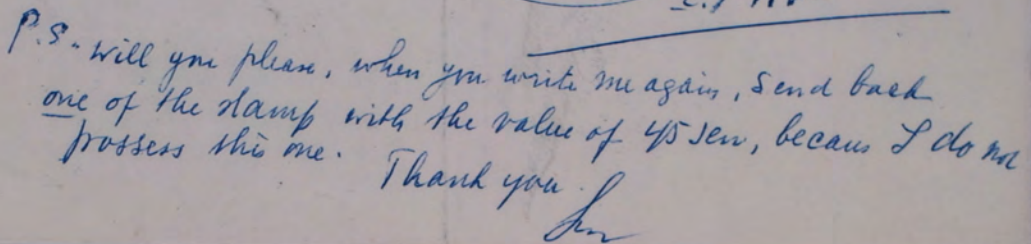 P.S. Will you please, when you write me again, send back
one of the stamp with the value of 45 sen, becaus I do not
possess this one.
Thank you.